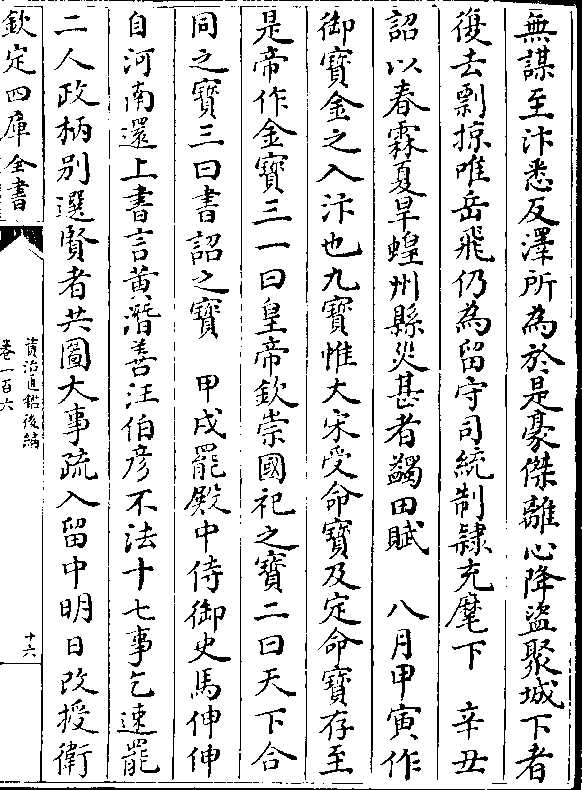 無謀至汴悉反澤所為於是豪傑離心降盜聚城下者
復去剽掠唯岳飛仍為留守司統制隷充麾下　辛丑
詔以春霖夏旱蝗州縣災甚者蠲田賦　八月甲寅作
御寶金之入汴也九寶惟大宋受命寶及定命寶存至
是帝作金寶三一曰皇帝欽崇國祀之寶二曰天下合
同之寶三曰書詔之寶　甲戌罷殿中侍御史馬伸伸
自河南還上書言黄潛善汪伯彦不法十七事乞速罷
二人政柄别選賢者共圖大事疏入留中明日改授衛
欽定四庫全書
資治通鑑後編
卷一百六
十六